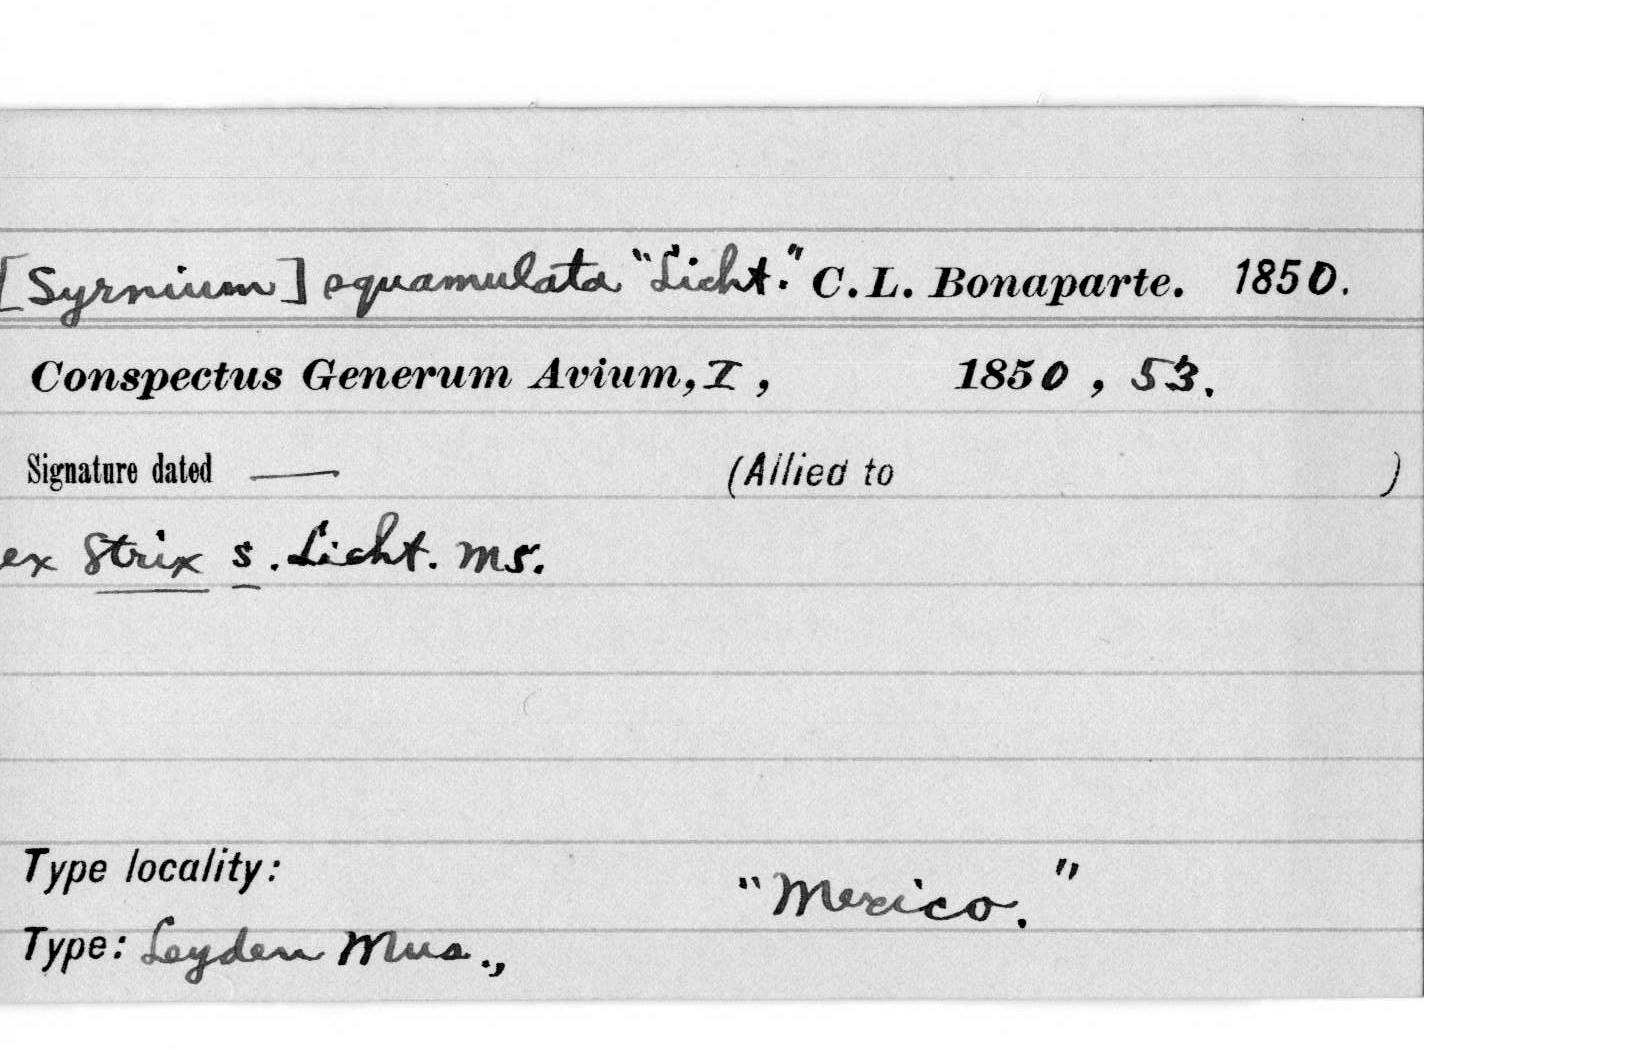 [Syrnium] squamulata "Licht." C. L. Bonaparte. 1850.
Conspectus Generum Avium, I, 1850, 53.
Signature dated — (Allied to )
ex Strix s. Licht. ms.
Type locality: "Mexico."
Type: Leyden Mus.,